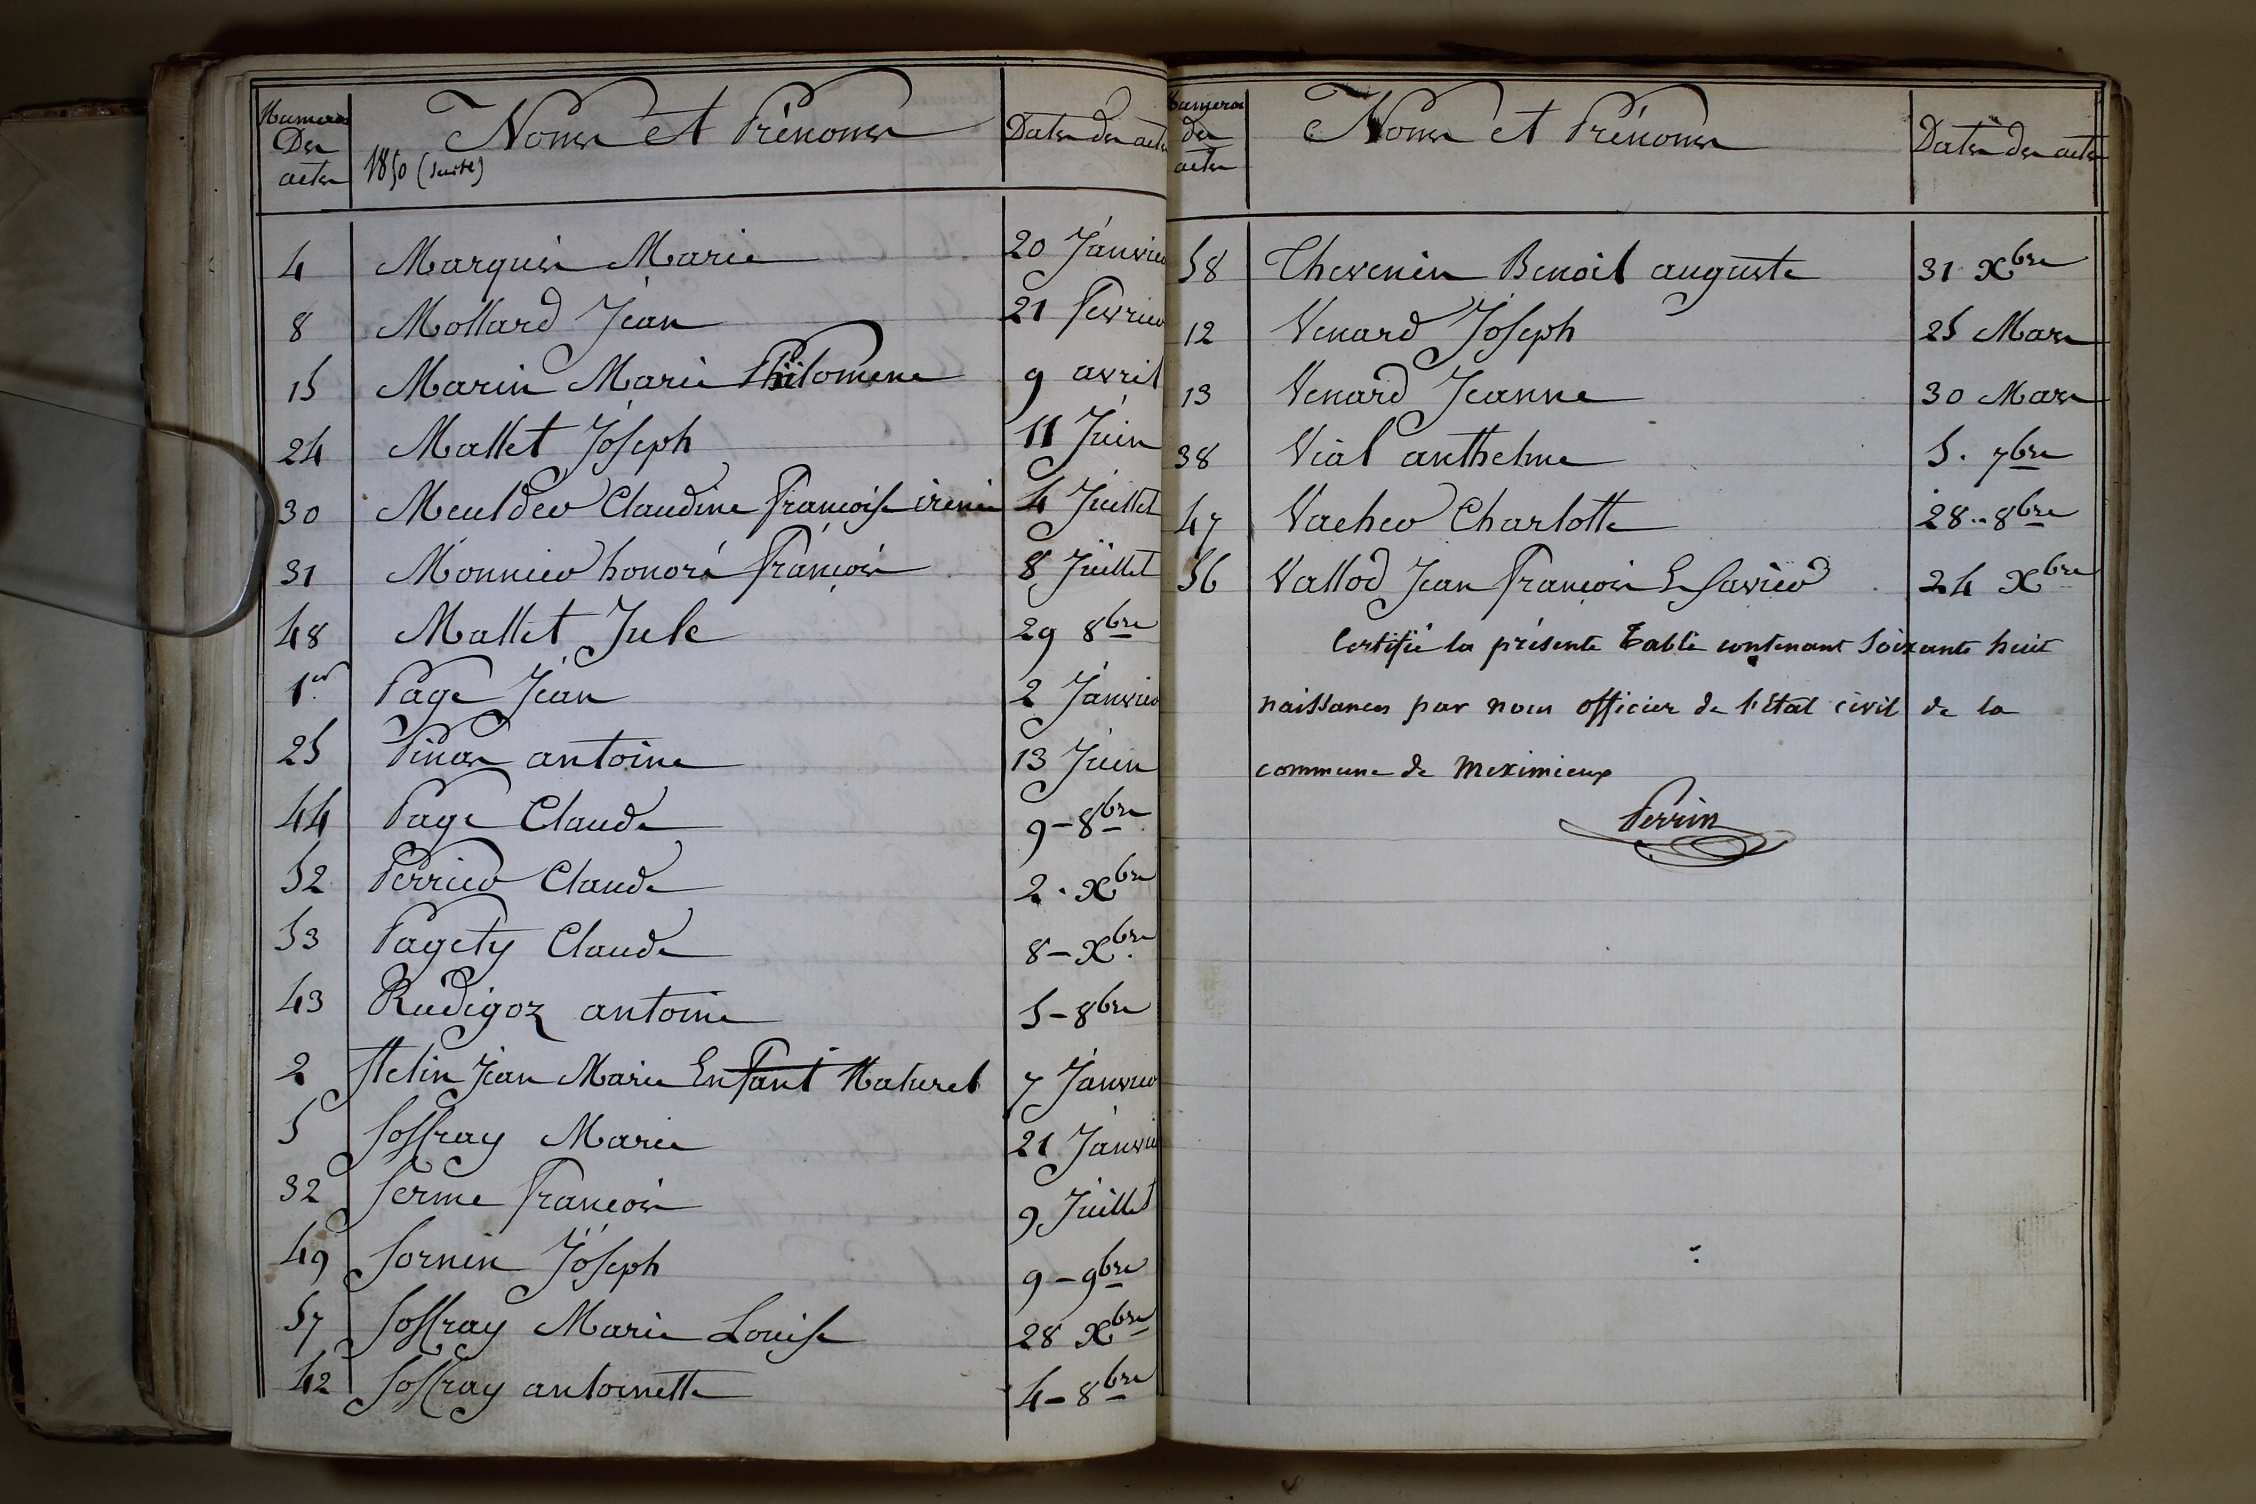 Numeros Des actes
Noms et Prénoms
Dates des actes
1850 (suite)
4 Marquis Marie 20 Janvier
8 Mollard Jean 21 fevrier
15 Marin Marie Philomene 9 avril
24 Mallet Joseph 11 Juin
30 Meulder Claudine françoise irenie 4 Juillet
31 Monnier honoré françois 8 Juillet
48 Mallet Jule 29 8bre
1er Page Jean 2 Janvier
25 antoine 13 Juin
44 Page Claude 9 - 8bre
52 Perrier Claude 2 . Xbre
53 Pagety Claude 8 - Xbre
43 Rudigoz antoine 5 - 8bre
2 Stelin Jean Marie Enfant Naturel 7 Janvier
5 Soffray Marie 21 Janvier
32 Serme françois 9 Juillet
49 Sornin Joseph 9 - 9bre
57 Soffray Marie Louise 28 Xbre
42 Soffray antoinette 4 - 8bre
Numeros des actes
Noms et Prénoms
Dates des actes
58 Thevenin Benoit auguste 31 Xbre
12 Venard Joseph 25 Mars
13 Venard Jeanne 30 Mars
38 Vial anthelme 5. 7bre
47 Vacher Charlotte 28 .. 8bre
56 Vallod Jean françois Xavier 24 Xbre
Certifié la présente Table contenant soixante huit
naissances par nous officier de l'état civil de la
commune de Meximieux
Perrin